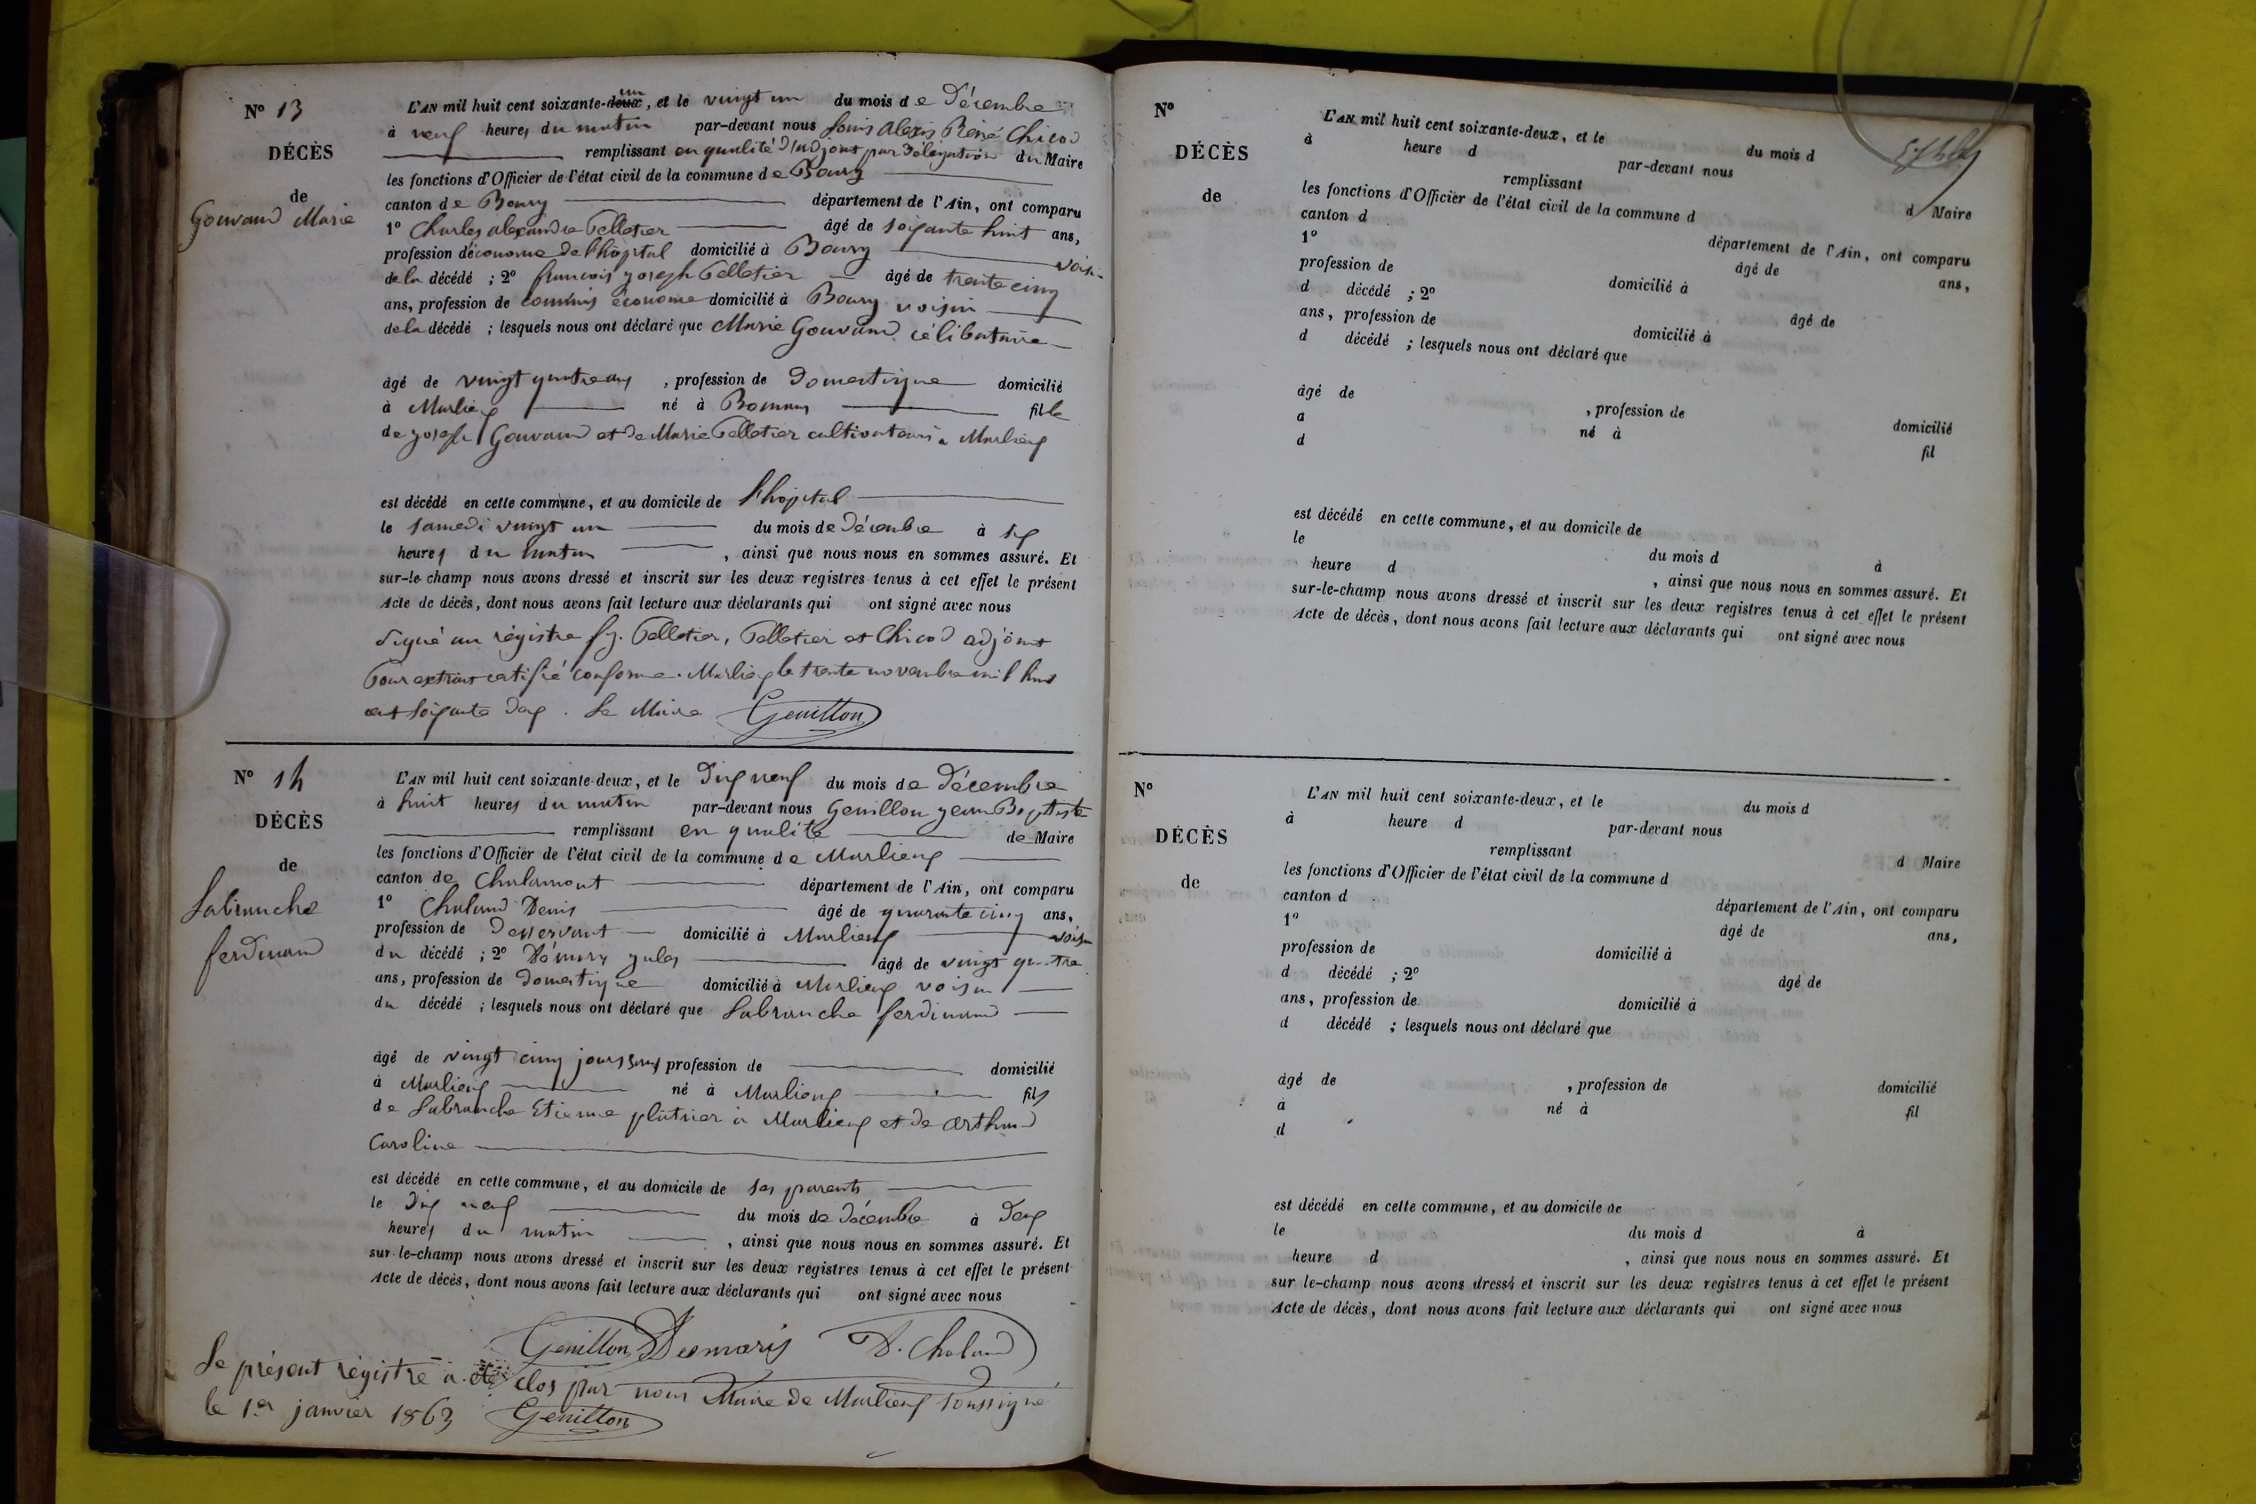 N° 13
DÉCÈS
de
Gouvand Marie
L'AN mil huit cent soixante-deux un, et le vingt un du mois de Décembre
à neuf heures du matin par-devant nous Louis Alexis René Chicod
remplissant en qualité d'adjoint par délégation du Maire
les fonctions d'Officier de l'état civil de la commune de Bourg
canton de Bourg département de l'Ain, ont comparu
1° Charles alexandre Pelletier âgé de soixante huit ans,
profession d'économe de l'hôpital domicilié à Bourg voisin
de la décédé ; 2° francois joseph Pelletier âgé de trente cinq
ans, profession de commis économe domicilié à Bourg voisin
de la décédé ; lesquels nous ont déclaré que Marie Gouvand célibataire
âgé de vingt quatre ans, profession de Domestique domicilié
à Marlieux né à fille
de joseph Gouvand et de Marie Pelletier cultivateurs à Marlieux
est décédé en cette commune, et au domicile de l'hôpital
le samedi vingt un du mois de Décembre à six
heures du matin, ainsi que nous nous en sommes assuré. Et
sur-le-champ nous avons dressé et inscrit sur les deux registres tenus à cet effet le présent
Acte de décès, dont nous avons fait lecture aux déclarants qui ont signé avec nous
Signé au régistre fj. Pelletier, Pelletier et Chicod adjoint
Pour extrait certifié conforme. Marlieux le trente novembre mil huit
cent soixante deux. Le Maire Genillon
N° 14
DÉCÈS
de
Labranche
ferdinand
L'AN mil huit cent soixante-deux, et le Dix neuf du mois de Décembre
à huit heures du matin par-devant nous Genillon jean Baptiste
remplissant en qualité de Maire
les fonctions d'Officier de l'état civil de la commune de Marlieux
canton de Chalamont département de l'Ain, ont comparu
1° Chaland Denis âgé de quarante cinq ans,
profession de Desservant domicilié à Marlieux voisin
du décédé ; 2° jules âgé de vingt quatre
ans, profession de domestique domicilié à Marlieux voisin
du décédé ; lesquels nous ont déclaré que Labranche ferdinand
âgé de vingt cinq jours sans profession de domicilié
à Marlieux né à Marlieux fils
de Labranche Etienne plâtrier à Marlieux et de Arthaud
Caroline
est décédé en cette commune, et au domicile de ses parents
le Dix neuf du mois de Décembre à Deux
heures du matin, ainsi que nous nous en sommes assuré. Et
sur-le-champ nous avons dressé et inscrit sur les deux registres tenus à cet effet le présent
Acte de décès, dont nous avons fait lecture aux déclarants qui ont signé avec nous
Genillon Desmaris D. Chaland
Le présent régistre a été clos par nous Maire de Marlieux soussigné
le 1er janvier 1863 Genillon
N°
DÉCÈS
de
L'AN mil huit cent soixante-deux, et le du mois d
à heure d par-devant nous
remplissant d Maire
les fonctions d'Officier de l'état civil de la commune d
canton d département de l'Ain, ont comparu
1° âgé de ans,
profession de domicilié à
d décédé ; 2° âgé de
ans, profession de domicilié à
d décédé ; lesquels nous ont déclaré que
âgé de , profession de domicilié
à né à fil
d
est décédé en cette commune, et au domicile de
le du mois d à
heure d , ainsi que nous nous en sommes assuré. Et
sur-le-champ nous avons dressé et inscrit sur les deux registres tenus à cet effet le présent
Acte de décès, dont nous avons fait lecture aux déclarants qui ont signé avec nous
N°
DÉCÈS
de
L'AN mil huit cent soixante-deux, et le du mois d
à heure d par-devant nous
remplissant d Maire
les fonctions d'Officier de l'état civil de la commune d
canton d département de l'Ain, ont comparu
1° âgé de ans,
profession de domicilié à
d décédé ; 2° âgé de
ans, profession de domicilié à
d décédé ; lesquels nous ont déclaré que
âgé de , profession de domicilié
à né à fil
d
est décédé en cette commune, et au domicile de
le du mois d à
heure d , ainsi que nous nous en sommes assuré. Et
sur le-champ nous avons dressé et inscrit sur les deux registres tenus à cet effet le présent
Acte de décès, dont nous avons fait lecture aux déclarants qui ont signé avec nous